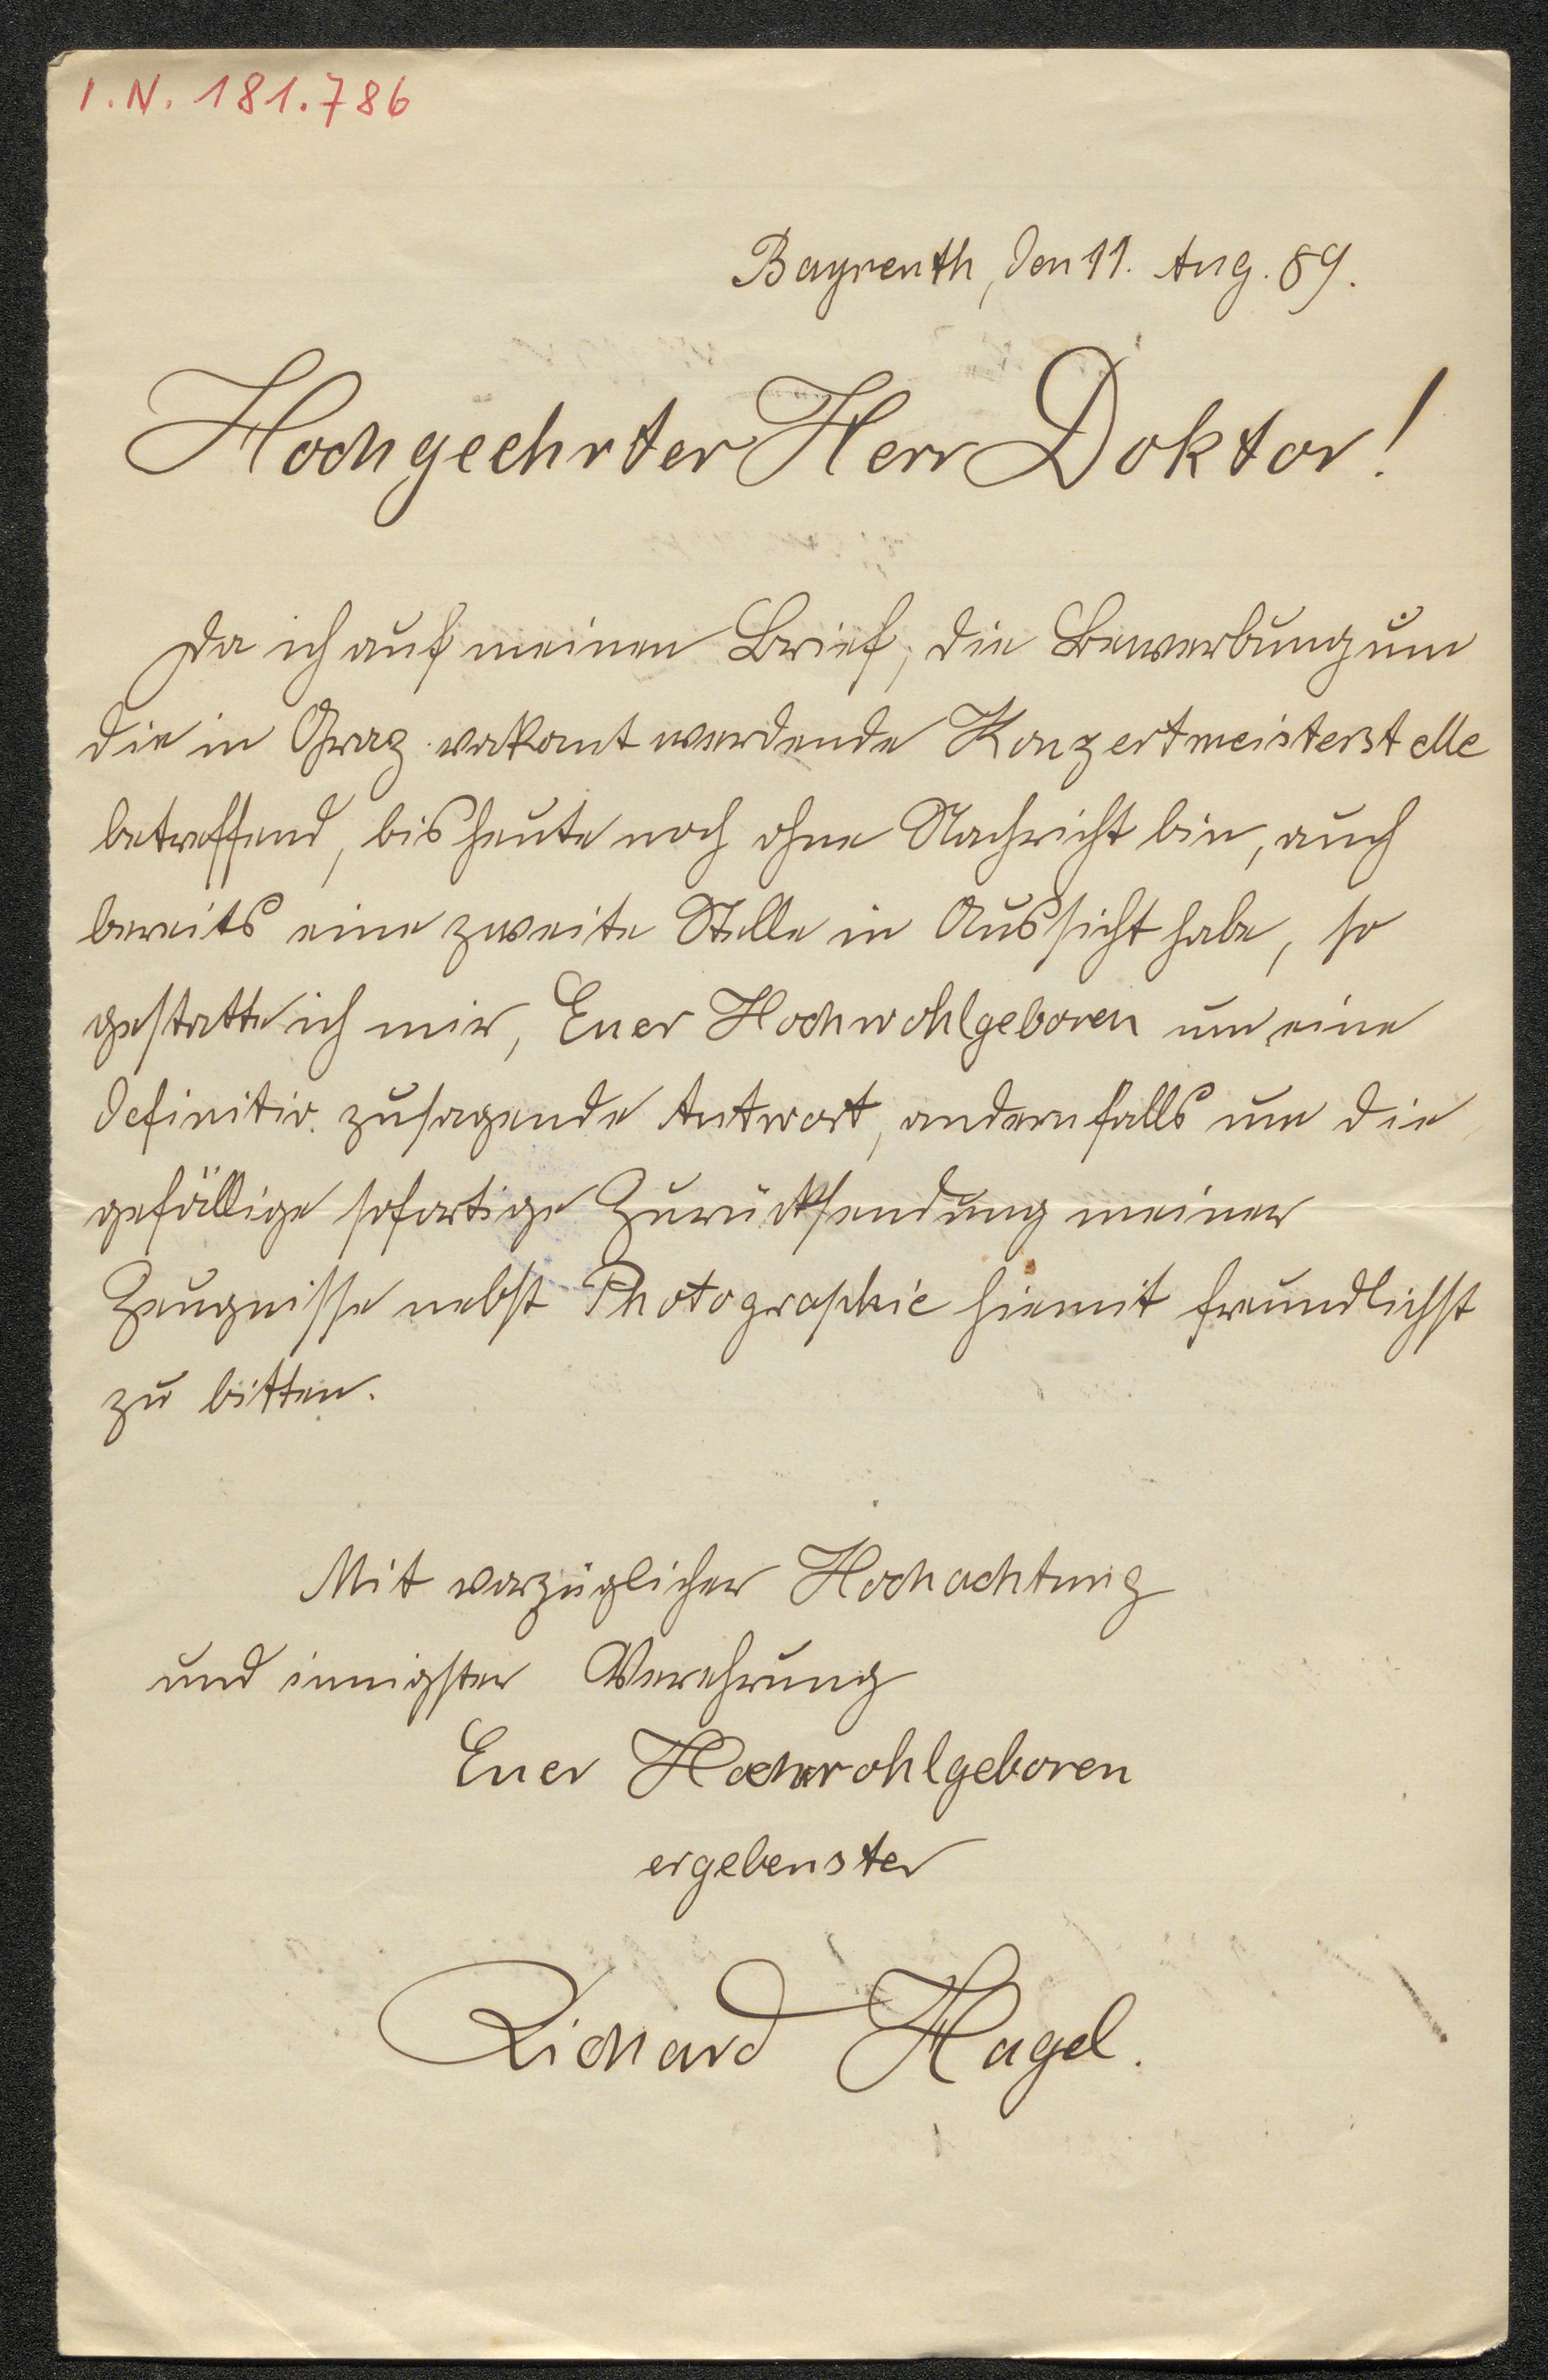 I.N. 181.786
Bayreuth, den 11. Aug. 89.
Hochgeehrter Herr Doktor!
Da ich auf meinen Brief, die Bewerbung um
die in Graz vakant werdende Konzertmeisterstelle
betreffend, bis heute noch ohne Nachricht bin, auch
bereits eine zweite Stelle in Aussicht habe, so
gestatte ich mir, Euer Hochwohlgeboren um eine
definitiv zusagende Antwort, andernfalls um die
gefällige sofortige Zurücksendung meiner
Zeugnisse nebst Photographie hiemit freundlichst
zu bitten.
Mit vorzüglicher Hochachtung
und innigster Verehrung
Euer Hochwohlgeboren
ergebenster
Richard Hagel.